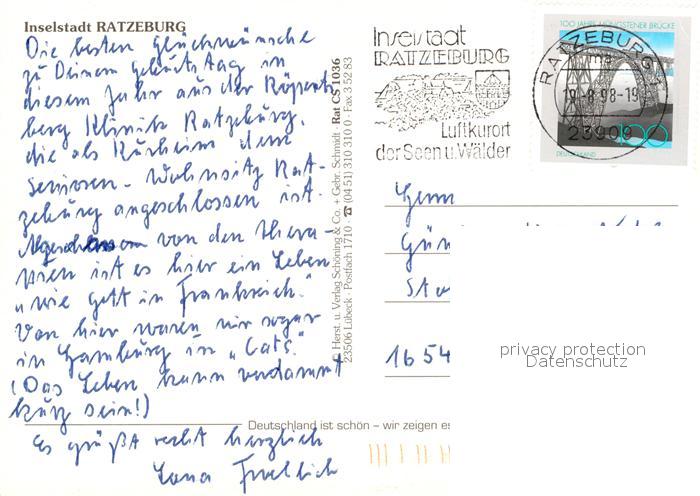 Inselstadt RATZEBURG
Die besten Glückwünsche
zu Deinem Geburtstag in
diesem Jahr aus der Röpers-
berg Klinik Ratzeburg,
die als Kurheim dem
Senioren-Wohnsitz Rat-
zeburg angeschlossen ist.
Abgesehen von den Thera-
pien ist es hier ein Leben
„wie Gott in Frankreich."
Von hier waren wir sogar
in Hamburg in „Cats."
(Das Leben kann verdammt
kurz sein!)
Es grüßt recht herzlich
Froehlich
© Herst. u. Verlag Schöning & Co. + Gebr. Schmidt · Rat CSA 1036
23506 Lübeck · Postfach 1710 ☎ (04 51) 310 3110 0 · Fax 3 52 83
Inselstadt
RATZEBURG
Luftkurort
der Seen u. Wälder
100 JAHRE MÜNGSTENER BRÜCKE
RATZEBURG 1
ma
-8.98-19
23909
100
DEUTSCHLAND
Herrn
Gün
1654
Deutschland ist schön – wir zeigen es
privacy protection
Datenschutz